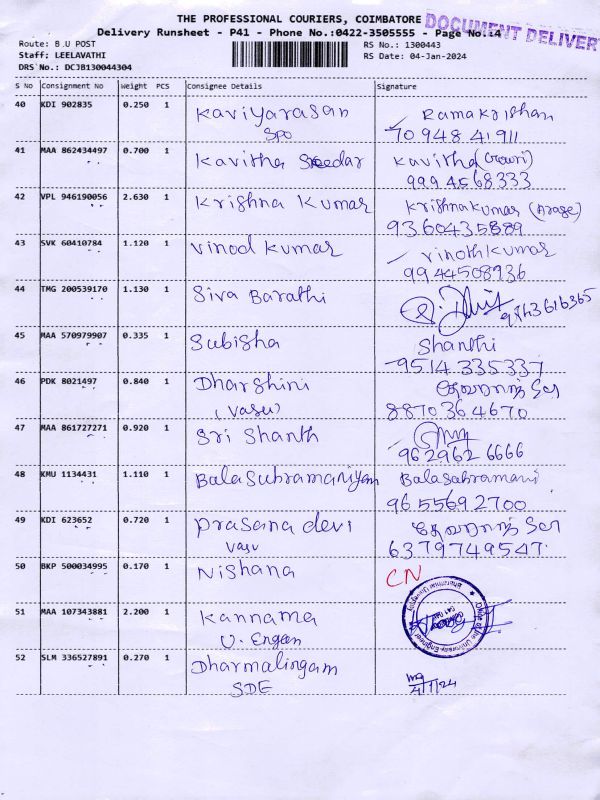 THE PROFESSIONAL COURIERS, COIMBATORE
DOCUMENT DELIVER
Delivery Runsheet - P41 - Phone No.:0422-3505555 - Page No.:4
Route: B.U POST
Staff; LEELAVATHI
DRS No.: DCJB130044304
RS No.: 1300443
RS Date: 04-Jan-2024
S No Consignment No Weight PCS Consignee Details Signature
40 KDI 902835 0.250 1 Kaviyarasan Ramakrishan
Spo 70948 41911
41 MAA 862434497 0.700 1 Kavitha Sreedar Kavitha (Gowri)
999 4568333
42 VPL 946190056 2.630 1 Krishna Kumar Krishnakumar
9360435889
43 SVK 60410784 1.120 1 Vinod Kumar Vinothkumar
9944508936
44 TMG 200539170 1.130 1 Siva Barathi
9843616365
45 MAA 570979907 0.335 1 Subisha Shanthi
9514 335337
46 PDK 8021497 0.840 1 Dharshini
(Vasu) 8870364670
47 MAA 861727271 0.920 1 Sri Shanth
962962 6666
48 KMU 1134431 1.110 1 Balasubramaniyam Balasubramani
9655692700
49 KDI 623652 0.720 1 Prasana devi
Vasu 6379749547
50 BKP 500034995 0.170 1 Nishana CN
51 MAA 107343881 2.200 1 Kannama
U. Engan
Office of the University Engineer
Bharathiar University
52 SLM 336527891 0.270 1 Dharmalingam
SDE 4/1/24